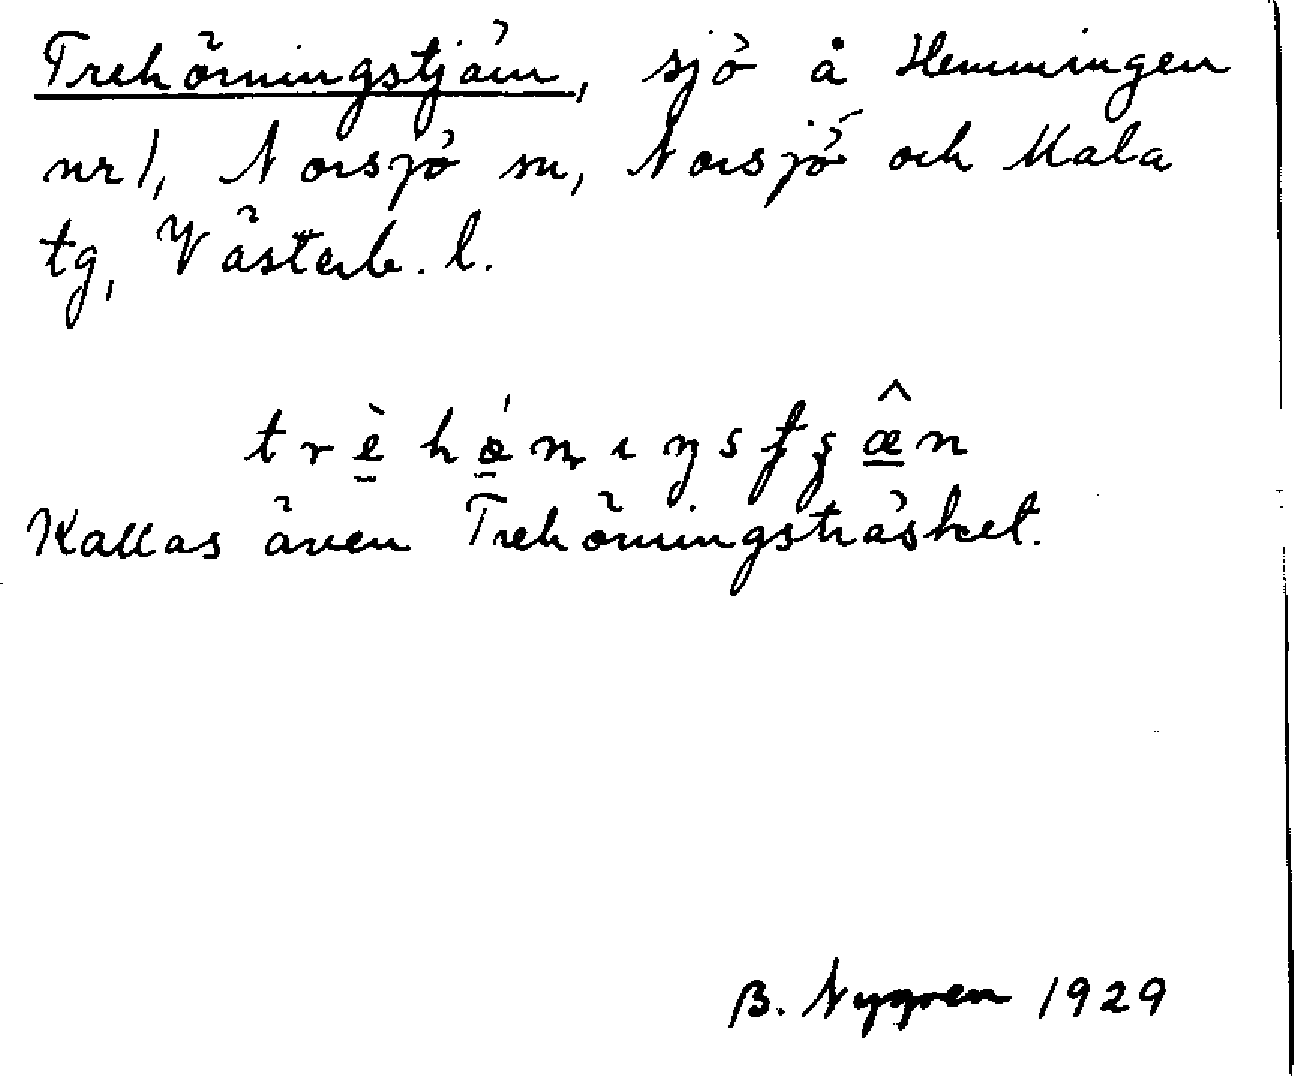 Trehörningstjärn, sjö å Hemmingen
nr 1, Norsjö sn, Norsjö och Mala
tg, Västerb. l.
trèhǿṇıŋsʈʂæ̂n
Kallas även Trehörningsträsket.
B. Nygren 1929